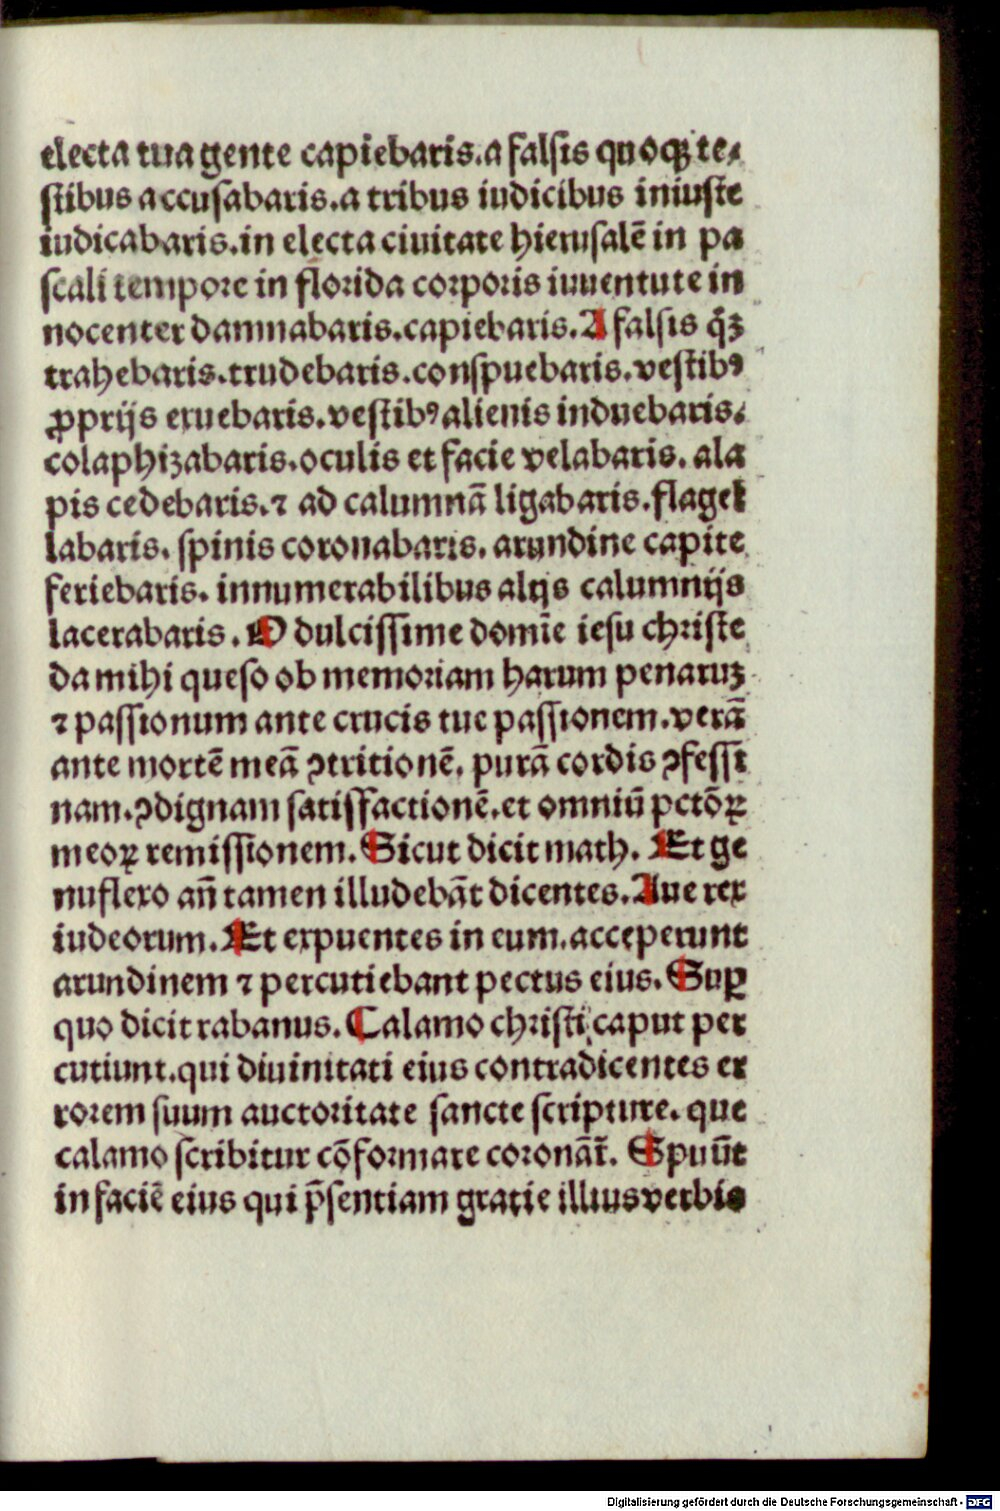 electa tua gente capiebaris.a falsis quoqꝫ te⸗
stibus accusabaris.a tribus iudicibus iniuste
iudicabaris.in electa ciuitate hierusalē in pa
scali tempore in florida corporis iuuentute in
nocenter damnabaris.capiebaris.A falsis q̄ꝫ
trahebaris.trudebaris.conspuebaris.vestibꝰ
ꝓprijs exuebaris.vestibꝰ alienis induebaris.
colaphizabaris.oculis et facie velabaris. ala
pis cedebaris.⁊ ad calumnā ligabaris.flagel
labaris. spinis coronabaris. arundine capite
feriebaris. innumerabilibus alijs calumnijs
lacerabaris. O dulcissime domīe iesu christe
da mihi queso ob memoriam harum penaruꝫ
⁊ passionum ante crucis tue passionem.verā
ante mortē meā ꝯtritionē. purā cordis ꝯfessi
nam.ꝯdignam satisfactionē.et omniū pctōꝝ
meoꝝ remissionem. Sicut dicit math. Et ge
nuflexo an̄ tamen illudebāt dicentes. Aue rex
iudeorum. Et expuentes in eum.acceperunt
arundinem ⁊ percutiebant pectus eius. Suꝑ
quo dicit rabanus. Calamo christi caput per
cutiunt.qui diuinitati eius contradicentes er
rorem suum auctoritate sancte scripture. que
calamo scribitur cōformare coronāt̄. Spuūt
in faciē eius qui p̄sentiam gratie illius verbis
Digitalisierung gefördert durch die Deutsche Forschungsgemeinschaft - DFG